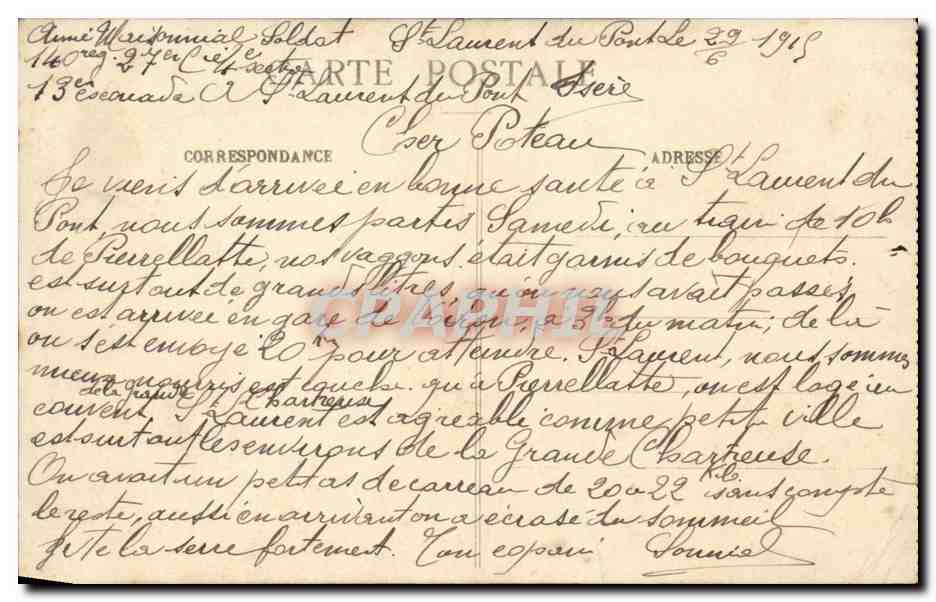 Aimé Maisonnial Soldat St Laurent du Pont Le 29/6 1915
140 reg. 27e Cie 4e
CARTE POSTALE
13e escouade A St Laurent du Pont Isère
Cher Poteau
CORRESPONDANCE
ADRESSE
Je viens d'arrivée en bonne santé à St Laurent du
Pont, nous sommes partis Samedi, au train de 10h
de Pierrellatte, nos vaggons était garnis de bouquets.
est surtout de grands litres, qu'on nous avait passés,
on est arrivée en gare de Voiron, à 3h du matin; de là
on s'est envoyé 20 pour atteindre. St Laurent, nous sommes
mieux nourris est couché qu'à Pierrellatte, on est logé au
couvent de la grande Chartreuse
St Laurent est agréable comme petite ville
est surtout les environs de la Grande Chartreuse.
On avait un petit as de carreau de 20 a 22 Kilo sans compté
le reste, aussi en arrivant on a écrasé du sommeil
je te la serre fortement. Ton copain
CPAPHIL